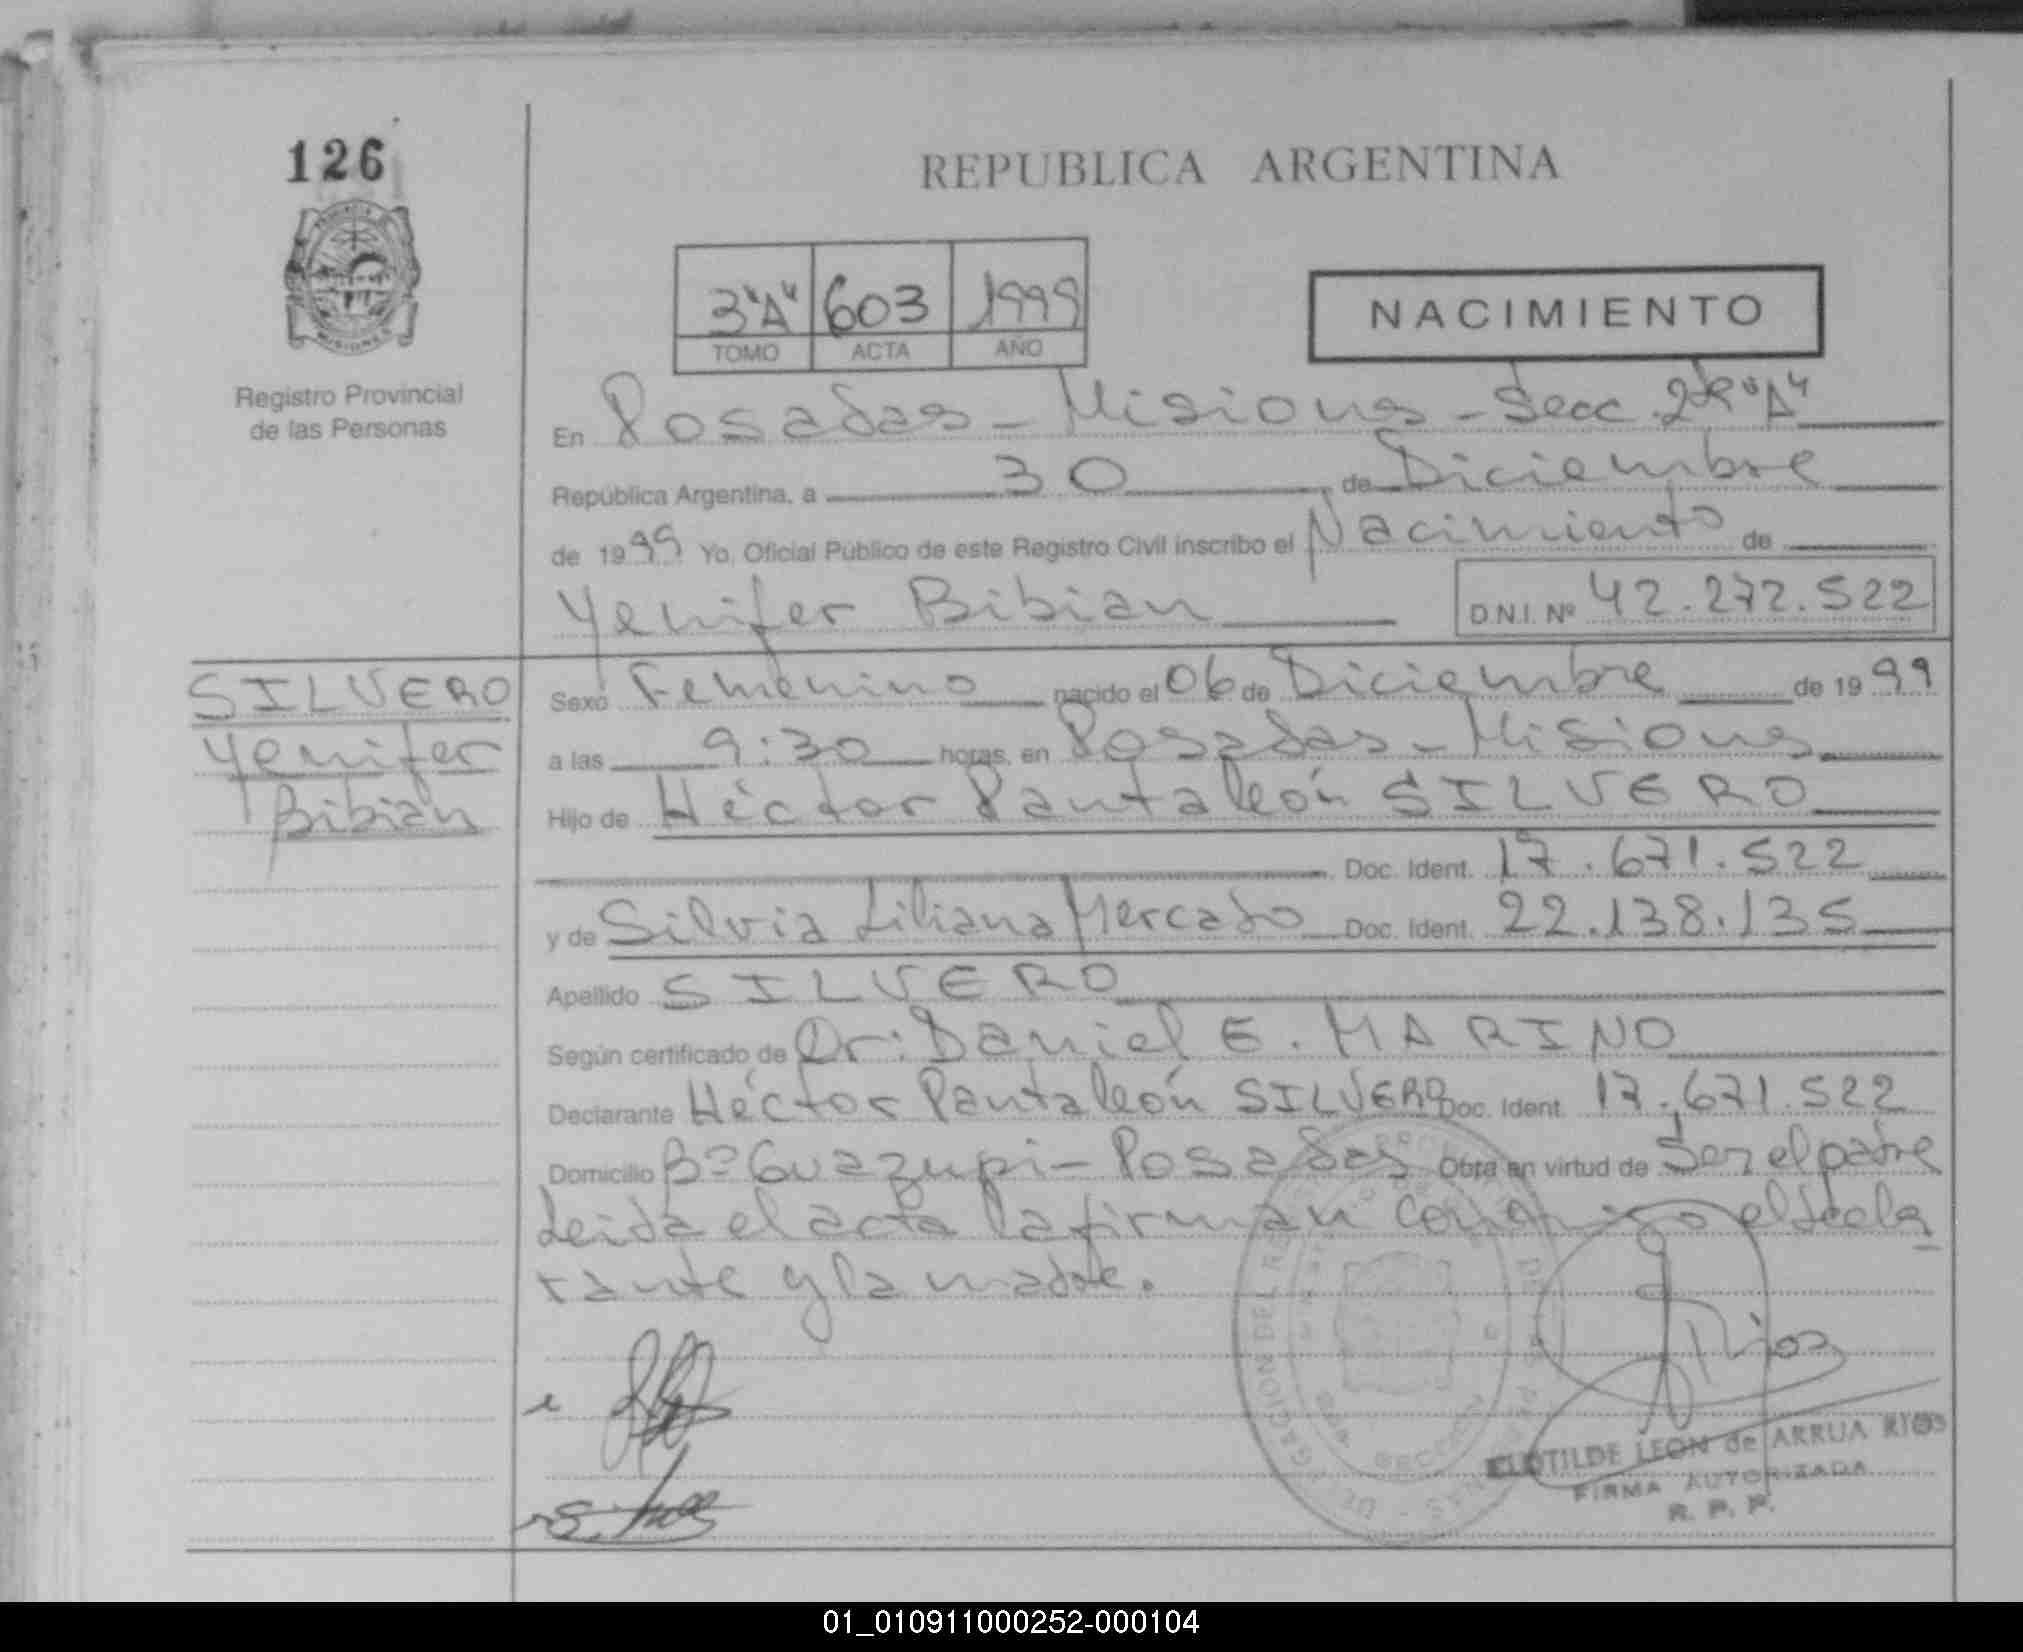 126
REPUBLICA ARGENTINA
3"A" 603 1999
TOMO ACTA AÑO
NACIMIENTO
Registro Provincial
de las Personas
En Posadas - Misiones - Secc. 2da "A"
República Argentina, a 30 de Diciembre
de 1999 Yo, Oficial Público de este Registro Civil inscribo el Nacimiento de
Yenifer Bibian D.N.I. Nº 42.272.522
SILVERO
Yenifer
Bibian
Sexo Femenino nacido el 06 de Diciembre de 1999
a las 9:30 horas, en Posadas - Misiones
Hijo de Héctor Pantaleón SILVERO
Doc. Ident. 17.671.522
y de Silvia Liliana Mercado Doc. Ident. 22.138.135
Apellido SILVERO
Según certificado de Dr: Daniel E. MARINO
Declarante Héctor Pantaleón SILVERO Doc. Ident. 17.671.522
Domicilio Bº Guazupi - Posadas Obra en virtud de Ser el padre
Leida el acta la firman conmigo el decla
rante y la madre.
Rios
CLOTILDE LEON de ARRUA RIOS
FIRMA AUTORIZADA
R. P. P.
01_010911000252-000104